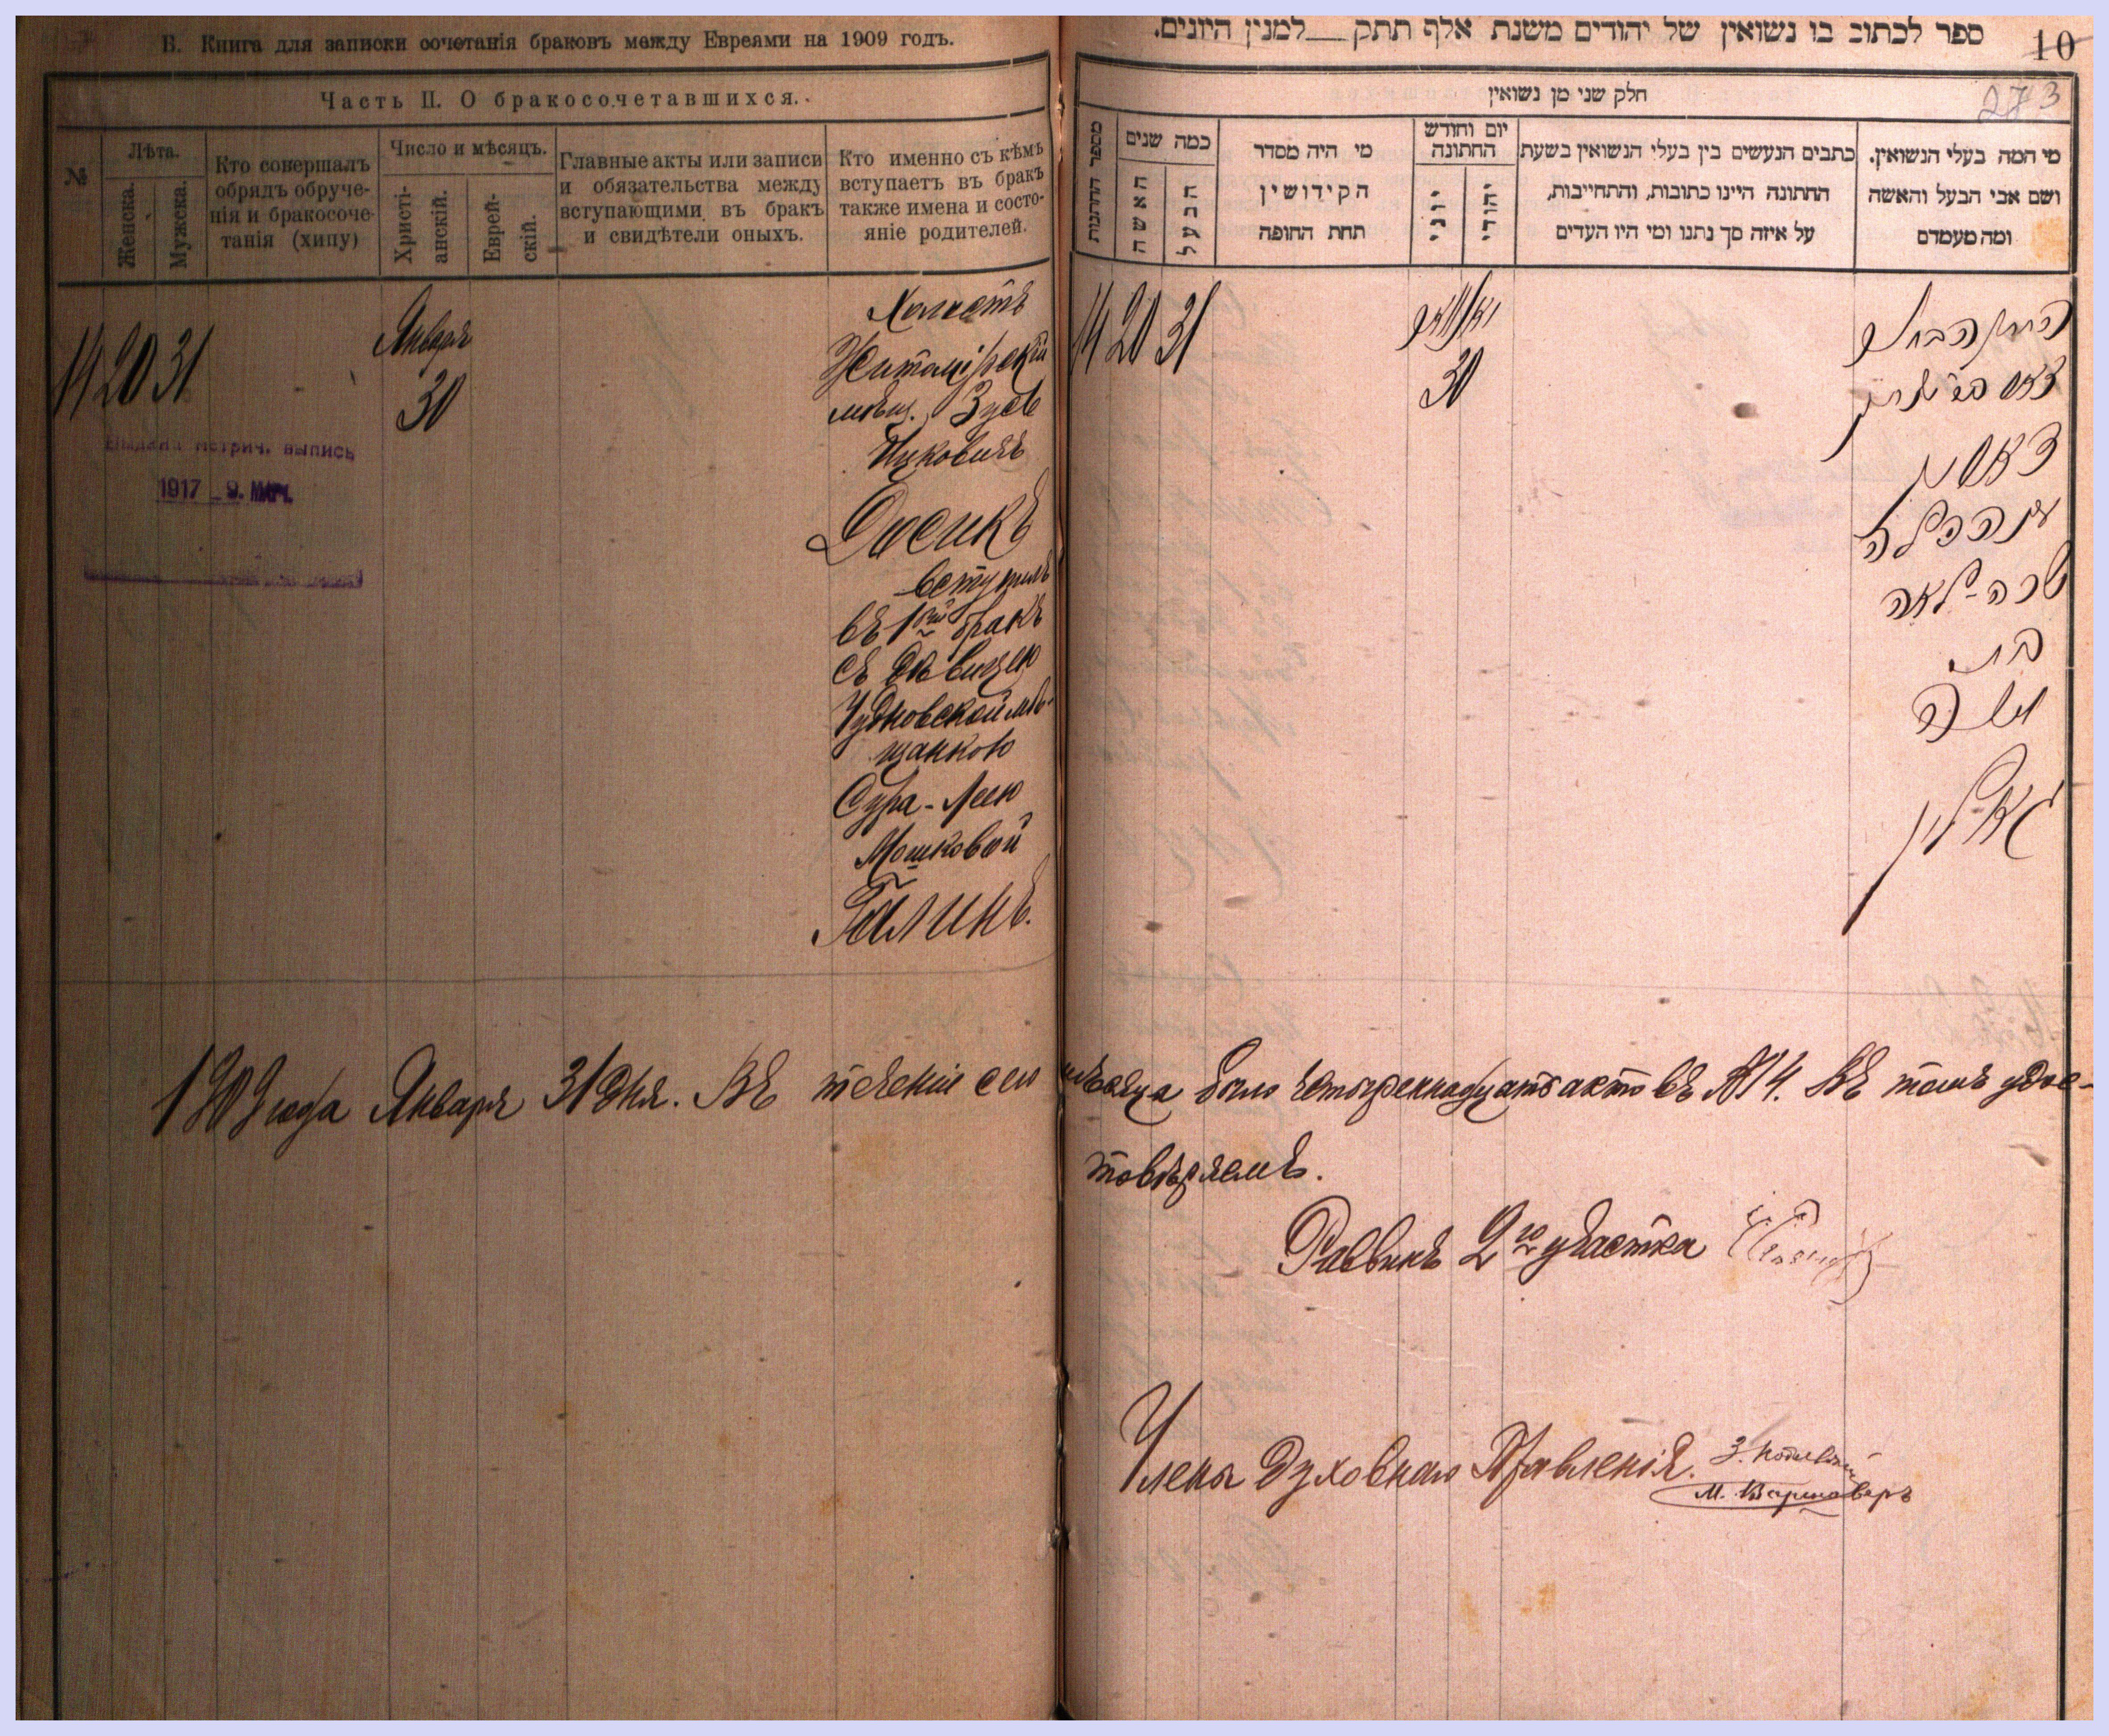 В. Книга для записки сочетанія браковъ между Евреями на 1909 годъ.
Часть II. О бракосочетавшихся.
№
Лѣта.
Женска.
Мужска.
Кто совершалъ
обрядъ обруче-
нія и бракосоче-
танія (хипу)
Число и мѣсяцъ.
Христі-
анскій.
Еврей-
скій.
Главные акты или записи
и обязательства между
вступающими въ бракъ
и свидѣтели оныхъ.
Кто именно съ кѣмъ
вступаетъ въ бракъ
также имена и состо-
яніе родителей.
14 20 31
Января
30
Холостъ
Житомірскій
мѣщ. Зусь
Ицковичъ
Досикъ
вступилъ
въ 1ый бракъ
съ дѣвицею
Чудновской мѣ-
щанкою
Сура-Леею
Мошковой
Галинъ.
Выдана метрич. выпись
1917 9. МАР.
ספר לכתוב בו נשואין של יהודים משנת אלף תתק למנין היונים.
10
273
חלק שני מן נשואין
מספר החתנות
כמה שנים
האשה
הבעל
מי היה מסדר
הקידושין
תחת החופה
יום וחודש
החתונה
יוני
יהודי
כתבים הנעשים בין בעלי הנשואין בשעת
החתונה היינו כתובות, והתחייבות,
על איזה סך נתנו ומי היו העדים
מי המה בעלי הנשואין.
ושם אבי הבעל והאשה
ומה מעמדם
14 20 31
יאנואר
30
החתן הבחור
עם הכלה
שרה לאה
בת
משה
גאלין
1909 года Января 31 дня. Въ теченіе сего мѣсяца было четырнадцать актовъ №14. Въ томъ удос-
товѣряемъ.
Раввинъ 2го участка
Члены Духовнаго Правленія.
М. Варшаверъ